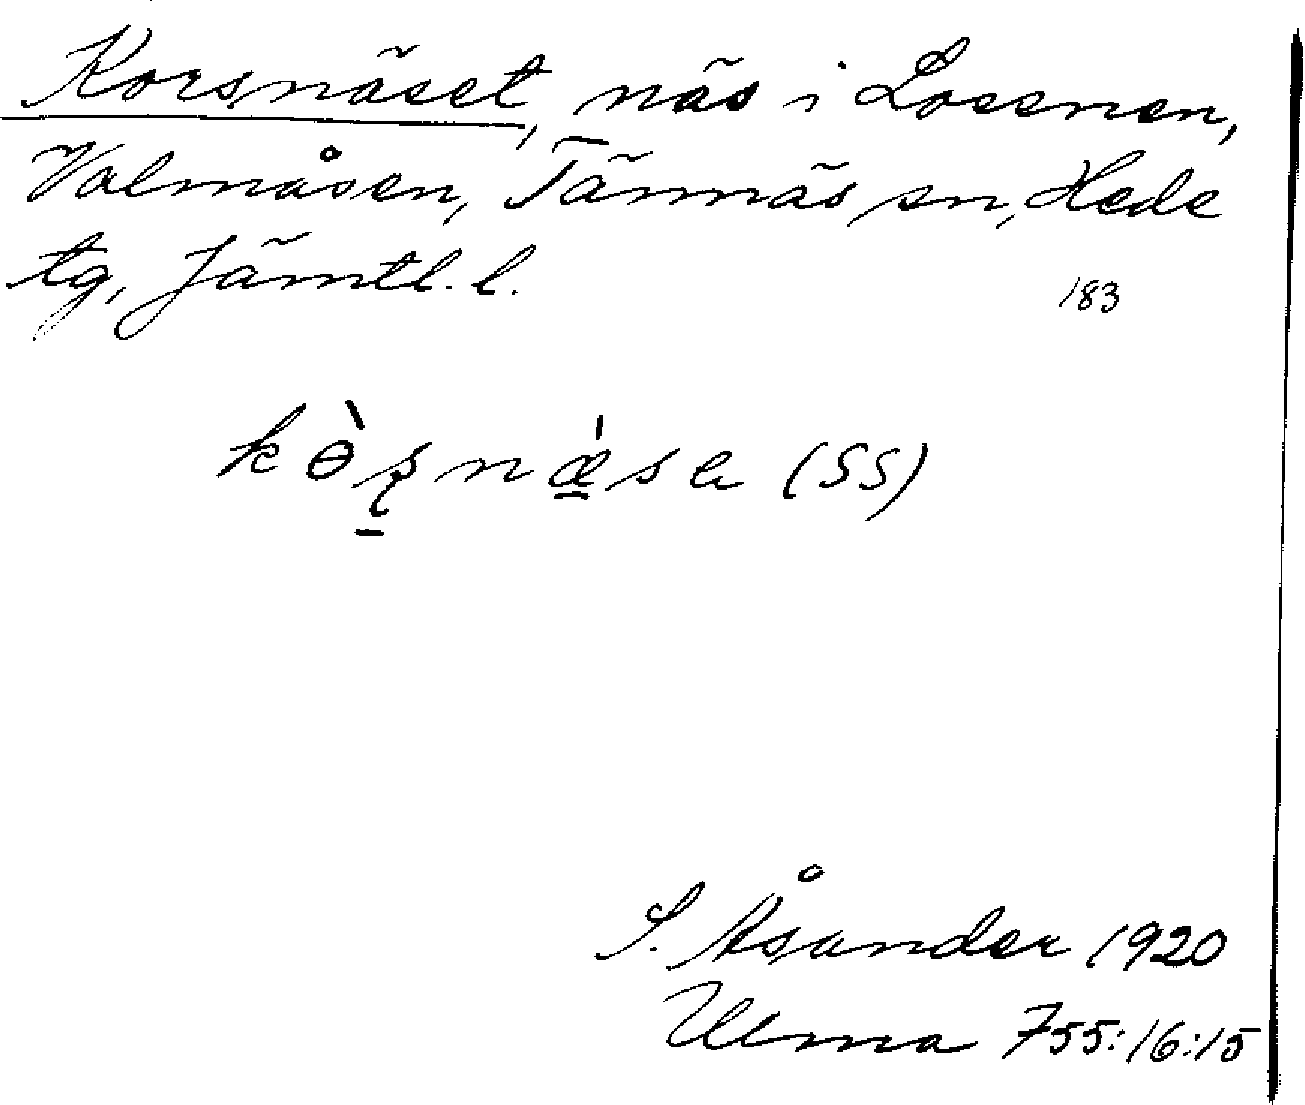 Korsnäset, näs i Lossnen,
Valmåsen, Tännäs sn, Hede
tg, Jämtl. l.
183
kɵ̀ʂnǽ̠sa (SS)
S. Åsander 1920
Ulma 755:16:15